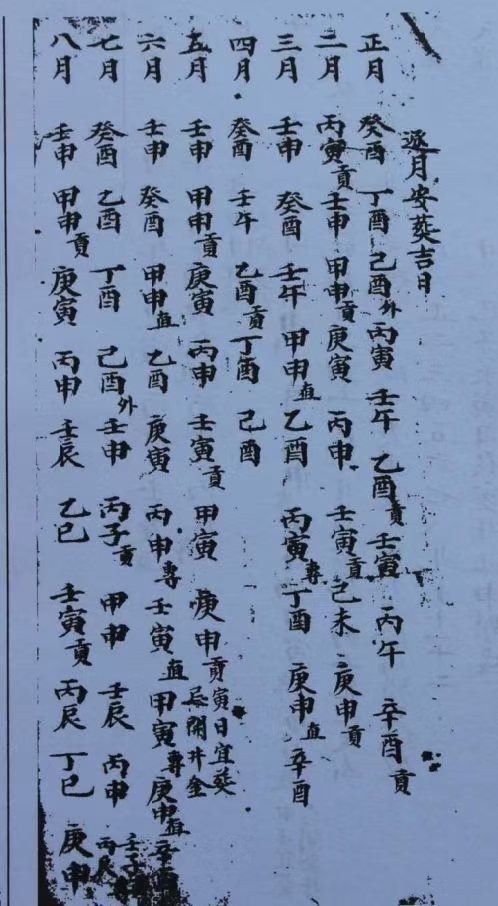 逐月安葬吉日
正月 癸酉 丁酉 己酉外 丙寅 壬午 乙酉貢 壬寅 丙午 辛酉貢
二月 丙寅貢 壬申 甲申貢 庚寅 丙申 壬寅貢 己未 庚申貢
三月 壬申 癸酉 壬午 甲申直 乙酉 丙寅專 丁酉 庚申直 辛酉
四月 癸酉 壬午 乙酉貢 丁酉 己酉
五月 壬申 甲申貢 庚寅 丙申 壬寅貢 甲寅 庚申貢 寅日宜葬忌開井金
六月 壬申 癸酉 甲申直 乙酉 庚寅 丙申專 壬寅直 甲寅專 庚申直 辛酉
七月 癸酉 乙酉 丁酉 己酉外 壬申 丙子貢 甲申 壬辰 丙申 壬子 丙辰
八月 壬申 甲申貢 庚寅 丙申 壬辰 乙巳 壬寅貢 丙辰 丁巳 庚申